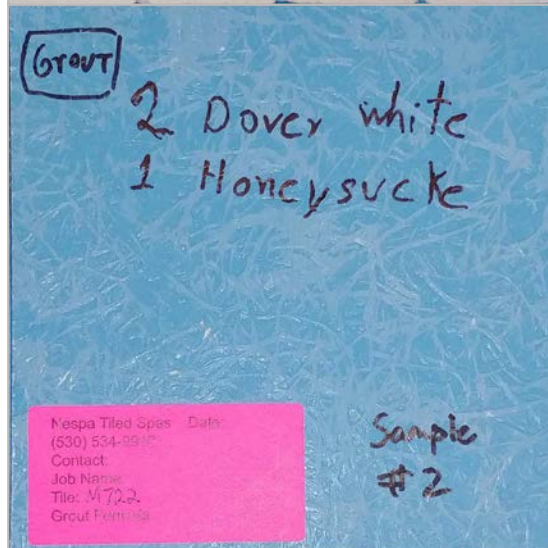 Grout
2 Dover white
1 Honeysucke
Nespa Tiled Spas Date:
(530) 534-
Contact:
Job Name
Tile: M722
Grout Formula
Sample
#2